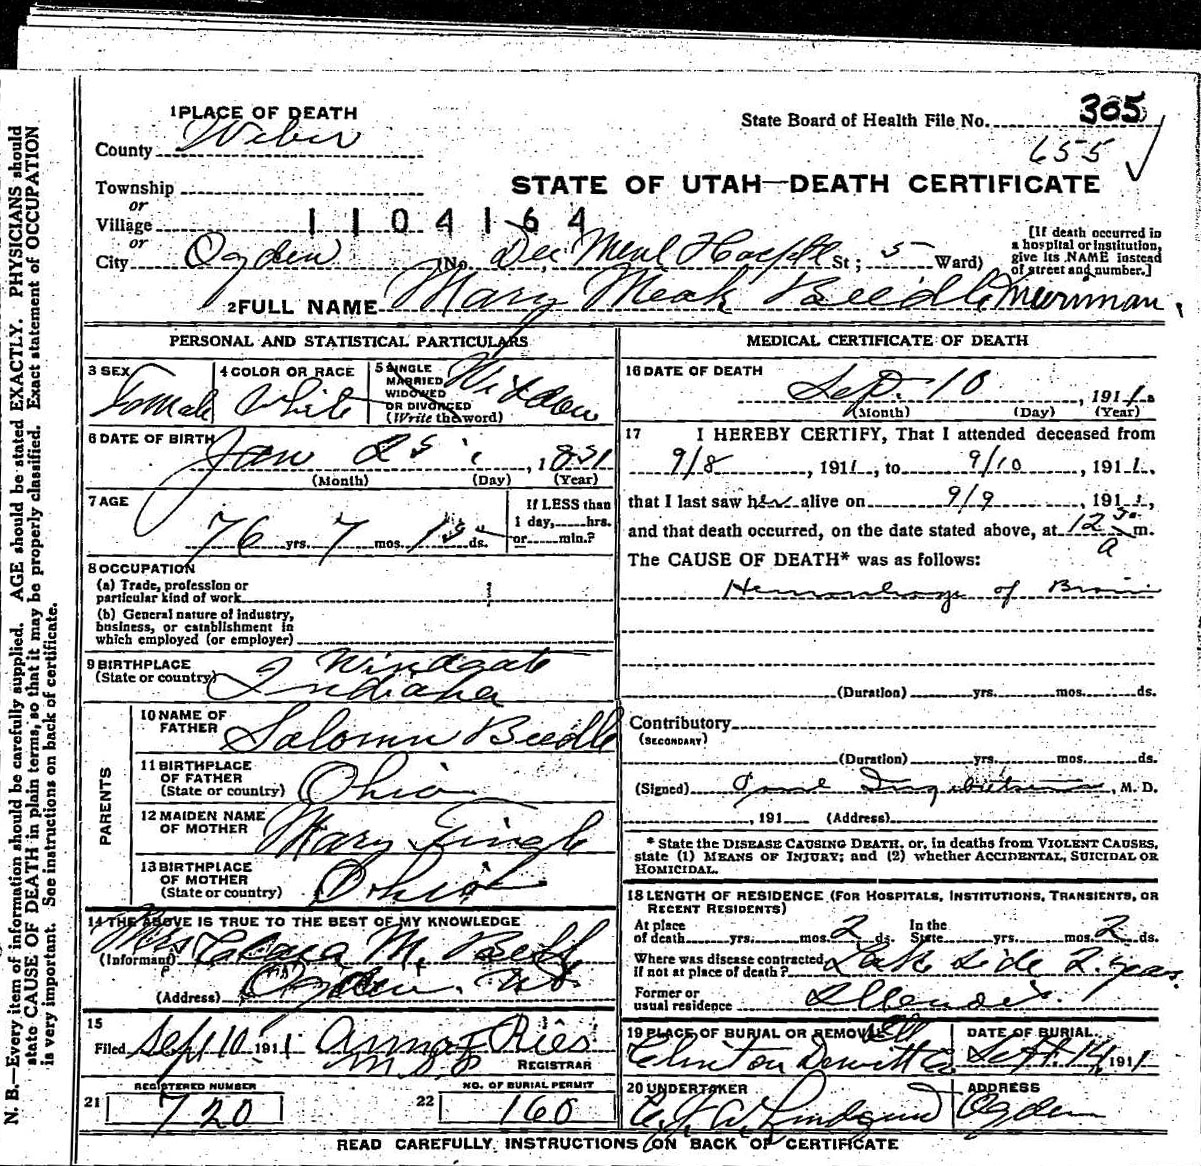 1 PLACE OF DEATH
State Board of Health File No. 305
County Weber
655
Township
STATE OF UTAH—DEATH CERTIFICATE
or
Village 1104164
or
City Ogden (No. Dee Meml Hospitl St; 5 Ward)
[If death occurred in a hospital or institution, give its NAME instead of street and number.]
2 FULL NAME Mary Meak Beedle Merriman
PERSONAL AND STATISTICAL PARTICULARS
3 SEX Female
4 COLOR OR RACE White
5 SINGLE MARRIED WIDOWED OR DIVORCED (Write the word) Widow
6 DATE OF BIRTH Jan 25, 1831
(Month) (Day) (Year)
7 AGE 76 yrs. 7 mos. ds.
If LESS than 1 day, hrs. or min.?
8 OCCUPATION
(a) Trade, profession or particular kind of work
(b) General nature of industry, business, or establishment in which employed (or employer)
9 BIRTHPLACE (State or country) Windgate Indiana
PARENTS
10 NAME OF FATHER Beedle
11 BIRTHPLACE OF FATHER (State or country) Ohio
12 MAIDEN NAME OF MOTHER Mary
13 BIRTHPLACE OF MOTHER (State or country) Ohio
14 THE ABOVE IS TRUE TO THE BEST OF MY KNOWLEDGE
(Informant) Mrs Clara M.
(Address) Ogden Ut
15
Filed Sept 10 1911 Anna F Ries
REGISTRAR
REGISTERED NUMBER
21 720
NO. OF BURIAL PERMIT
22 160
MEDICAL CERTIFICATE OF DEATH
16 DATE OF DEATH
Sep. 10, 1911
(Month) (Day) (Year)
17 I HEREBY CERTIFY, That I attended deceased from
9/8, 1911, to 9/10, 1911,
that I last saw her alive on 9/9, 1911,
and that death occurred, on the date stated above, at 12 30 a m.
The CAUSE OF DEATH* was as follows:
Hemorrhage of Brain
(Duration) yrs. mos. ds.
Contributory
(SECONDARY)
(Duration) yrs. mos. ds.
(Signed) M. D.
, 191 (Address)
* State the DISEASE CAUSING DEATH, or, in deaths from VIOLENT CAUSES, state (1) MEANS OF INJURY; and (2) whether ACCIDENTAL, SUICIDAL OR HOMICIDAL.
18 LENGTH OF RESIDENCE (FOR HOSPITALS, INSTITUTIONS, TRANSIENTS, OR RECENT RESIDENTS)
At place of death yrs. mos. 2 ds. In the State yrs. mos. 2 ds.
Where was disease contracted, if not at place of death? Lake Side 2 years.
Former or usual residence
19 PLACE OF BURIAL OR REMOVAL Clinton Dewitt Co Ill
DATE OF BURIAL Sept. 14, 1911
20 UNDERTAKER Lindquist
ADDRESS Ogden
READ CAREFULLY INSTRUCTIONS ON BACK OF CERTIFICATE
N. B.—Every item of information should be carefully supplied. AGE should be stated EXACTLY. PHYSICIANS should
state CAUSE OF DEATH in plain terms, so that it may be properly classified. Exact statement of OCCUPATION
is very important. See instructions on back of certificate.